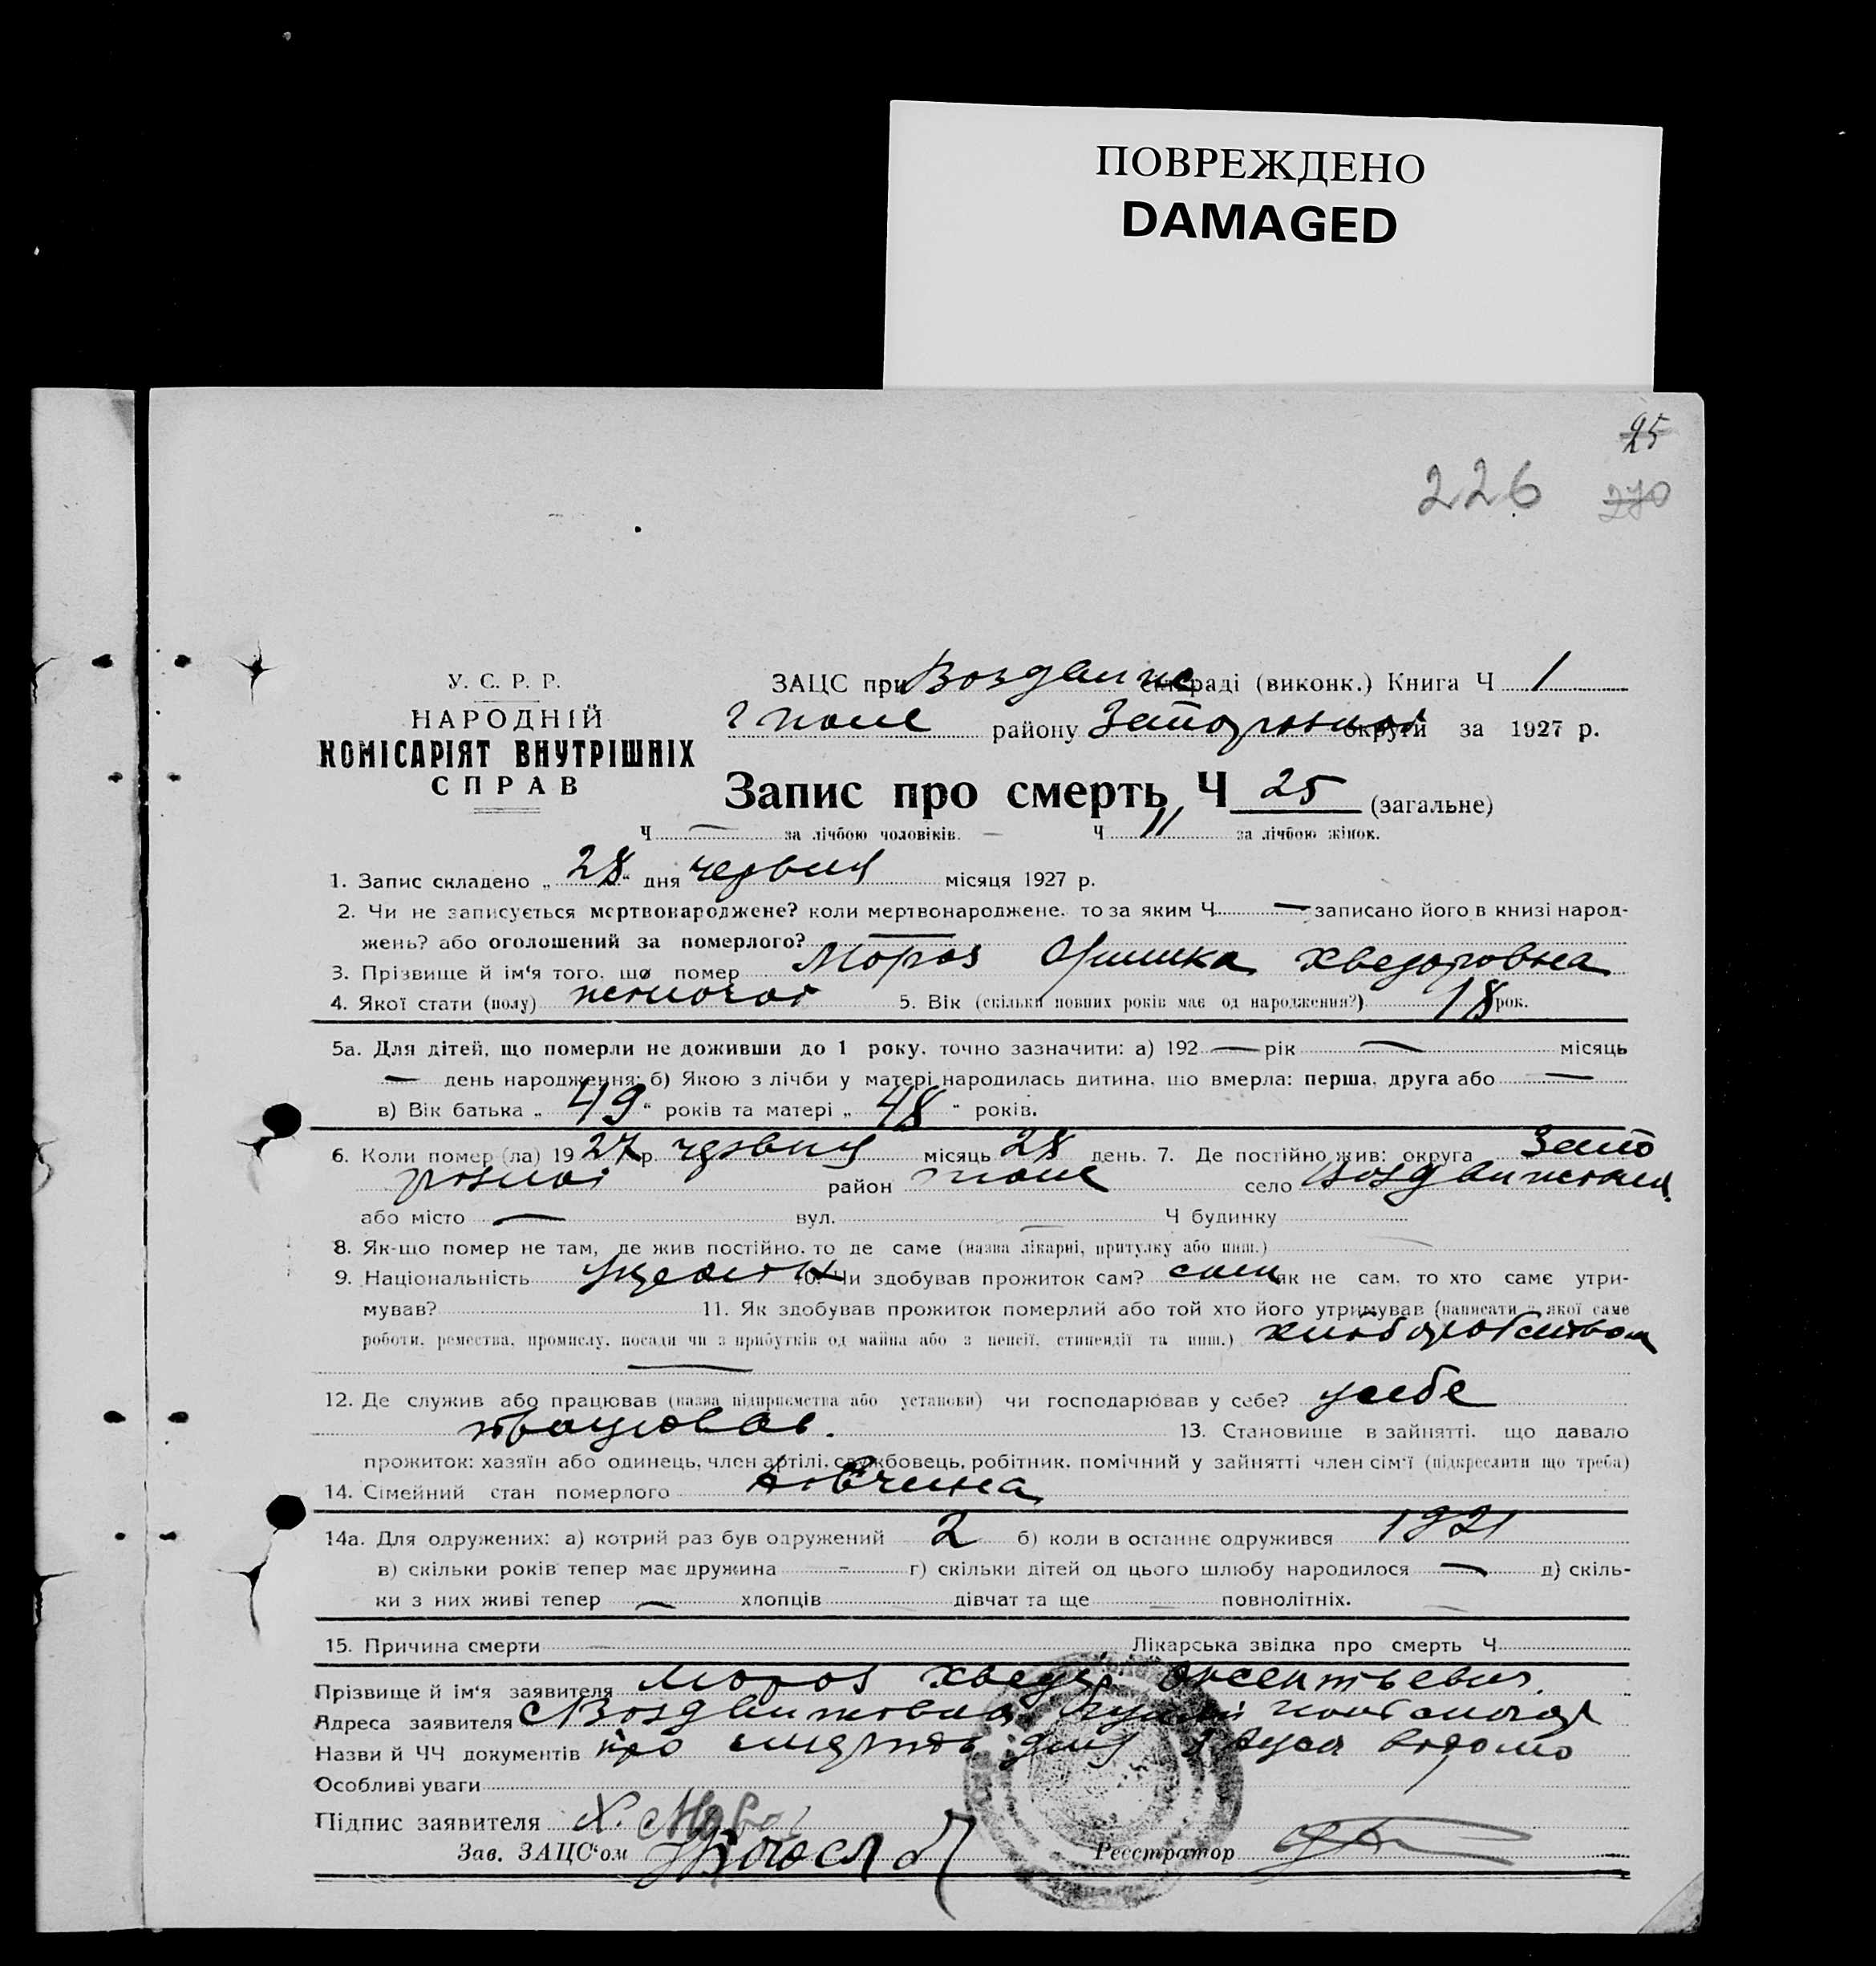 ПОВРЕЖДЕНО
DAMAGED
25
226 270
У. С. Р. Р.
НАРОДНІЙ
КОМІСАРІЯТ ВНУТРІШНІХ
СПРАВ
ЗАЦС при Воздвиже сільраді (виконк.) Книга Ч 1
Г поле району Запорозької округи за 1927 р.
Запис про смерть Ч 25 (загальне)
Ч — за лічбою чоловіків. — Ч 11 за лічбою жінок.
1. Запис складено „ 28 “ дня червня місяця 1927 р.
2. Чи не записується мертвонароджене? коли мертвонароджене. то за яким Ч — записано його в книзі народ-
жень? або оголошений за померлого? —
3. Прізвище й ім‘я того. що помер Мороз Оришка Хведоровна
4. Якої стати (полу) жіночої 5. Вік (скільки повних років має од народження?) 18 рок.
5а. Для дітей, що померли не доживши до 1 року. точно зазначити: а) 192 — рік — місяць
— день народження; б) Якою з лічби у матері народилась дитина. що вмерла: перша. друга або —
в) Вік батька „ 49 “ років та матері „ 48 “ років.
6. Коли помер (ла) 19 27 р. червня місяць 28 день. 7. Де постійно жив: округа Запо
розької район Гполе село Воздвижевка
або місто — вул. — Ч будинку
8. Як-що помер не там, де жив постійно. то де саме (назва лікарні, притулку або инш.)
9. Національність 10. Чи здобував прожиток сам? сам як не сам. то хто саме утри-
мував? 11. Як здобував прожиток померлий або той хто його утримував (написати з якої саме
роботи. ремества. промислу. посади чи з прибутків од майна або з пенсії. стипендії та инш.) хліборобством
—
12. Де служив або працював (назва підприємства або установи) чи господарював у себе? у себе
працював. 13. Становище в зайнятті. що давало
прожиток: хазяїн або одинець, член артілі. службовець, робітник. помічний у зайнятті член сім‘ї (підкреслити що треба)
14. Сімейний стан померлого дівчина
14а. Для одружених: а) котрий раз був одружений 2 б) коли в останнє одружився 1921
в) скільки років тепер має дружина - г) скільки дітей од цього шлюбу народилося — д) скіль-
ки з них живі тепер — хлопців дівчат та ще — повнолітніх.
15. Причина смерти — Лікарська звідка про смерть Ч
Прізвище й ім‘я заявителя Мороз Хведір Оксентьевич.
Адреса заявителя Воздвижовка
Назви й ЧЧ документів про смерть відомо
Особливі уваги
Підпис заявителя Х. Мороз
Зав. ЗАЦС‘ом Реєстратор